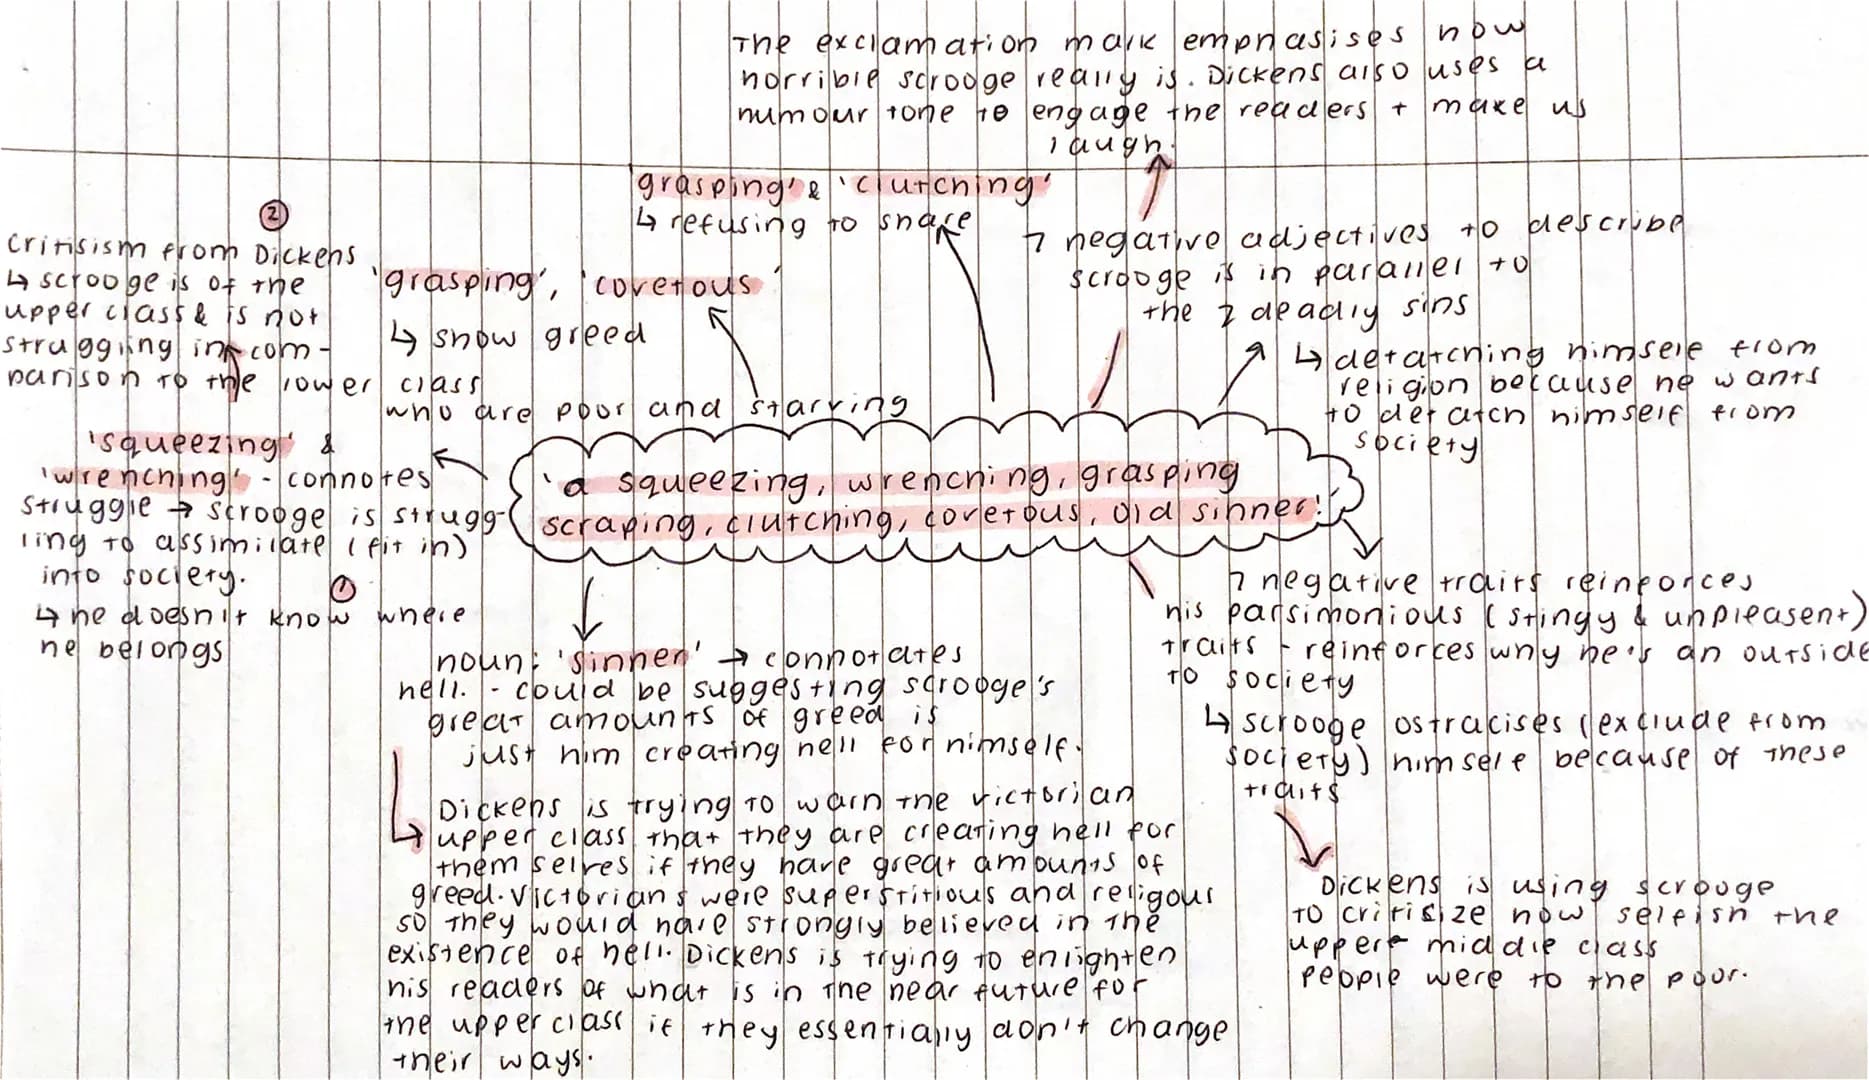 The exclamation mark emphasises how
horrible scrooge really is. Dickens also uses a
humour tone to engage the readers + make us
laugh.
'grasping' & 'clutching'
↳ refusing to share
7 negative adjectives to describe
scrooge is in parallel to
the 7 deadly sins
↳ detatching himself from
religion because he wants
to detatch himself from
society
②
Critisism from Dickens
↳ scrooge is of the
upper class & is not
struggling in com-
parison to the lower class
who are poor and starving
'grasping', 'covetous'
↳ show greed
'squeezing' &
'wrenching' - connotes
struggle → scrooge is strugg-
ling to assimilate (fit in)
into society.
①
↳ he doesn't know where
he belongs
'a squeezing, wrenching, grasping
scraping, clutching, covetous, old sinner!'
7 negative traits reinforces
his parsimonious (stingy & unpleasent)
traits - reinforces why he's an outside
to society
↳ scrooge ostracises (exclude from
society) himself because of these
traits
Dickens is using scrooge
to critisize how selfish the
upper middle class
people were to the poor.
noun: 'sinner' → connotates
hell. - could be suggesting scrooge's
great amounts of greed is
just him creating hell for himself.
Dickens is trying to warn the victorian
↳ upper class that they are creating hell for
themselves if they have great amounts of
greed. Victorians were superstitious and religous
so they would have strongly believed in the
existence of hell. Dickens is trying to enlighten
his readers of what is in the near future for
the upper class if they essentially don't change
their ways.